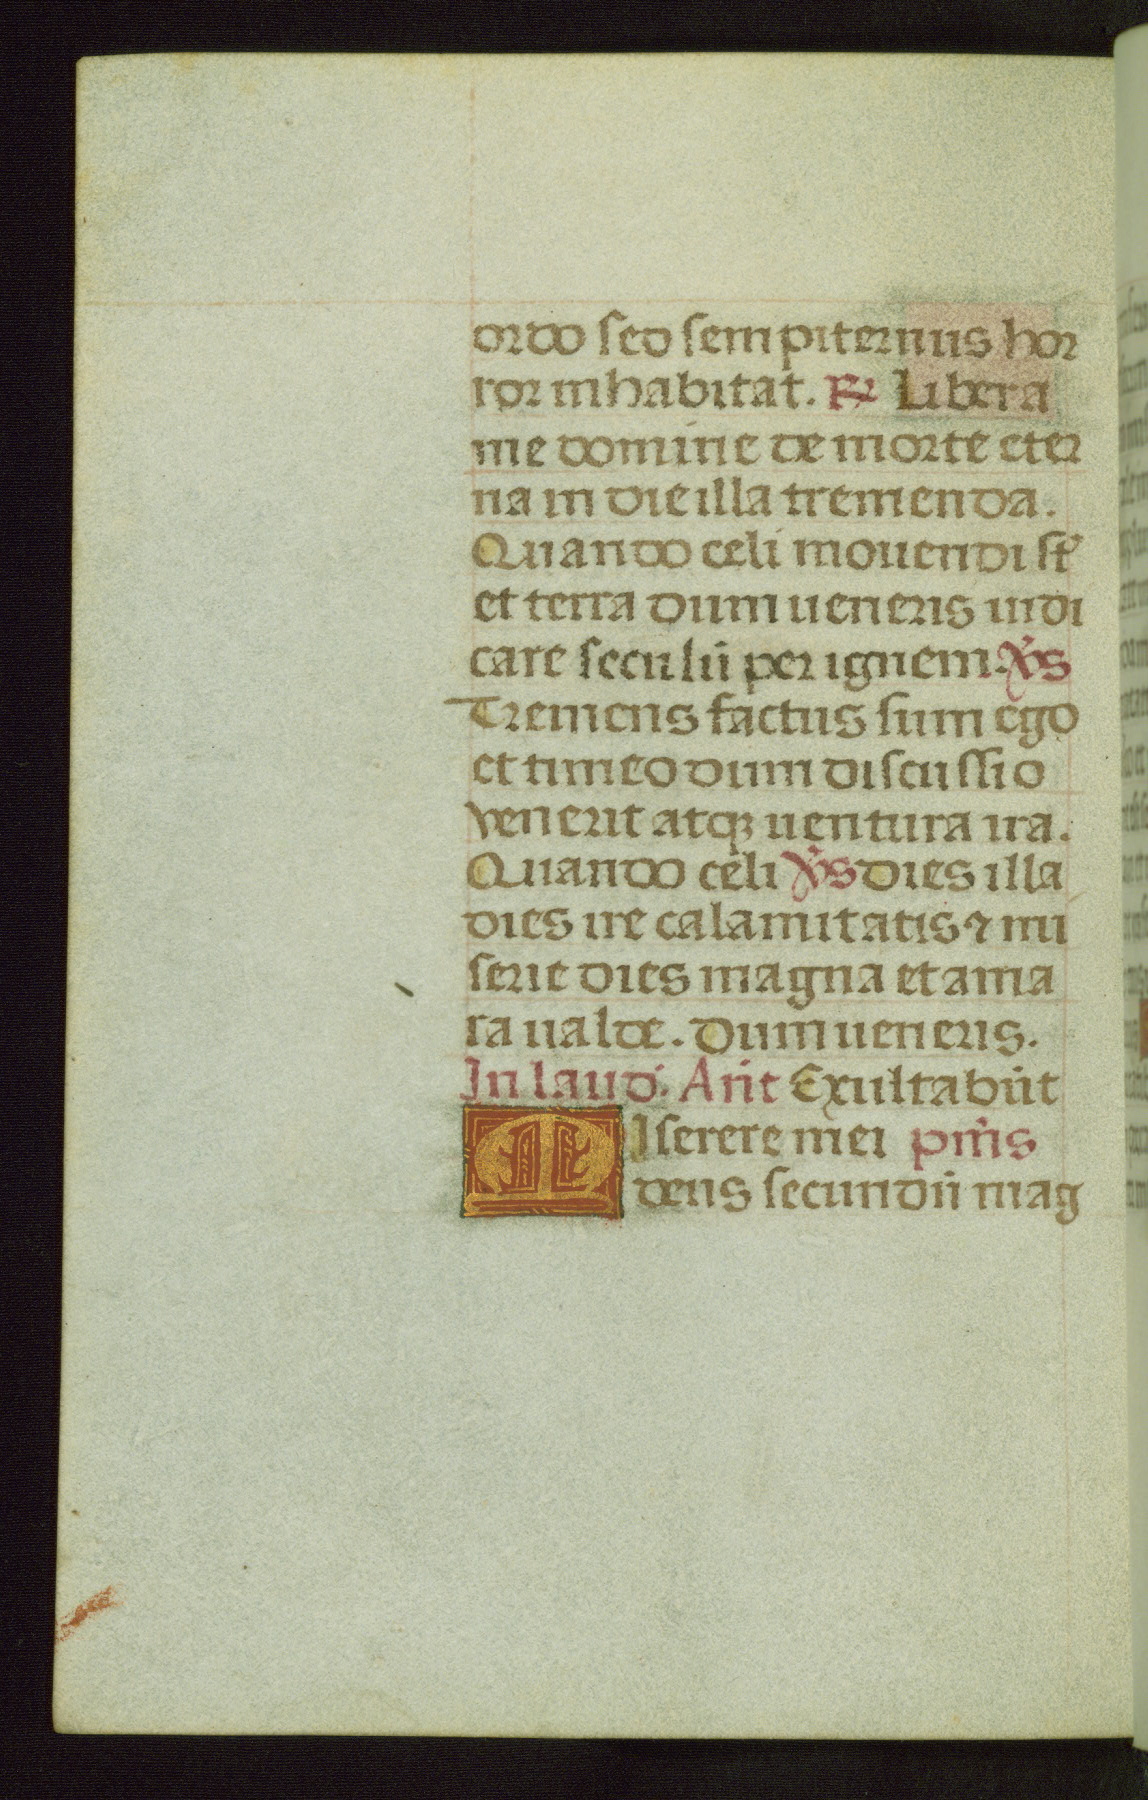 ordo sed sempiternus hor
ror inhabitat. R Libera
me domine de morte eter
na in die illa tremenda.
Quando celi mouendi st̄
et terra dum ueneris iudi
care seculū per ignem. V̄s
Tremens factus sum ego
et timeo dum discussio
venerit atqꝫ uentura ira.
Quando celi V̄s dies illa
dies ire calamitatis ⁊ mi
serie dies magna et ama
ra ualde. Dum ueneris.
In laud'. Añt Exultabūt
MIserere mei pm̄s
deus secundū mag